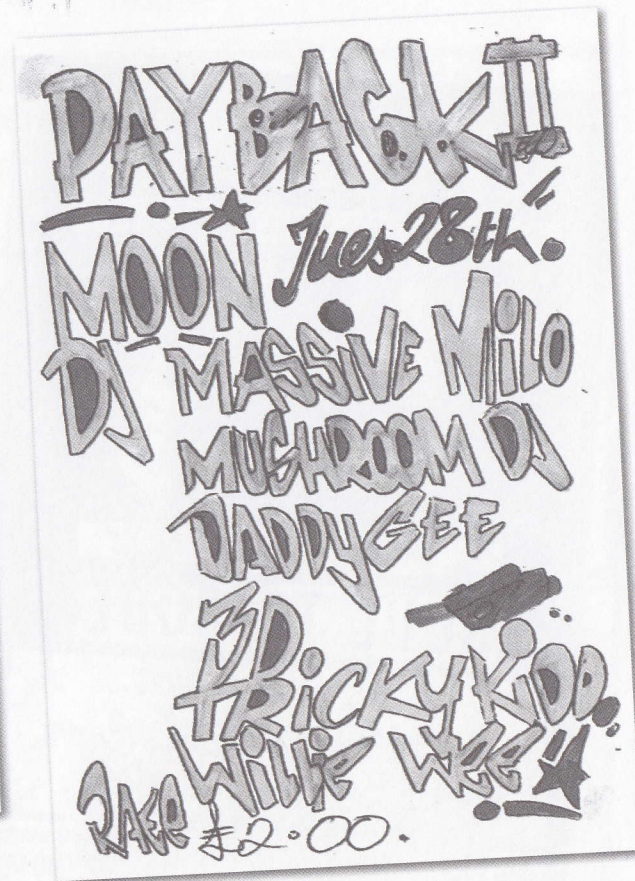 PAYBACK II
MOON Tues 28th.
DJ MASSIVE MILO
MUSHROOM DJ
DADDY GEE
3D
TRICKY KIDD
WILLIE WEE
£2.00.